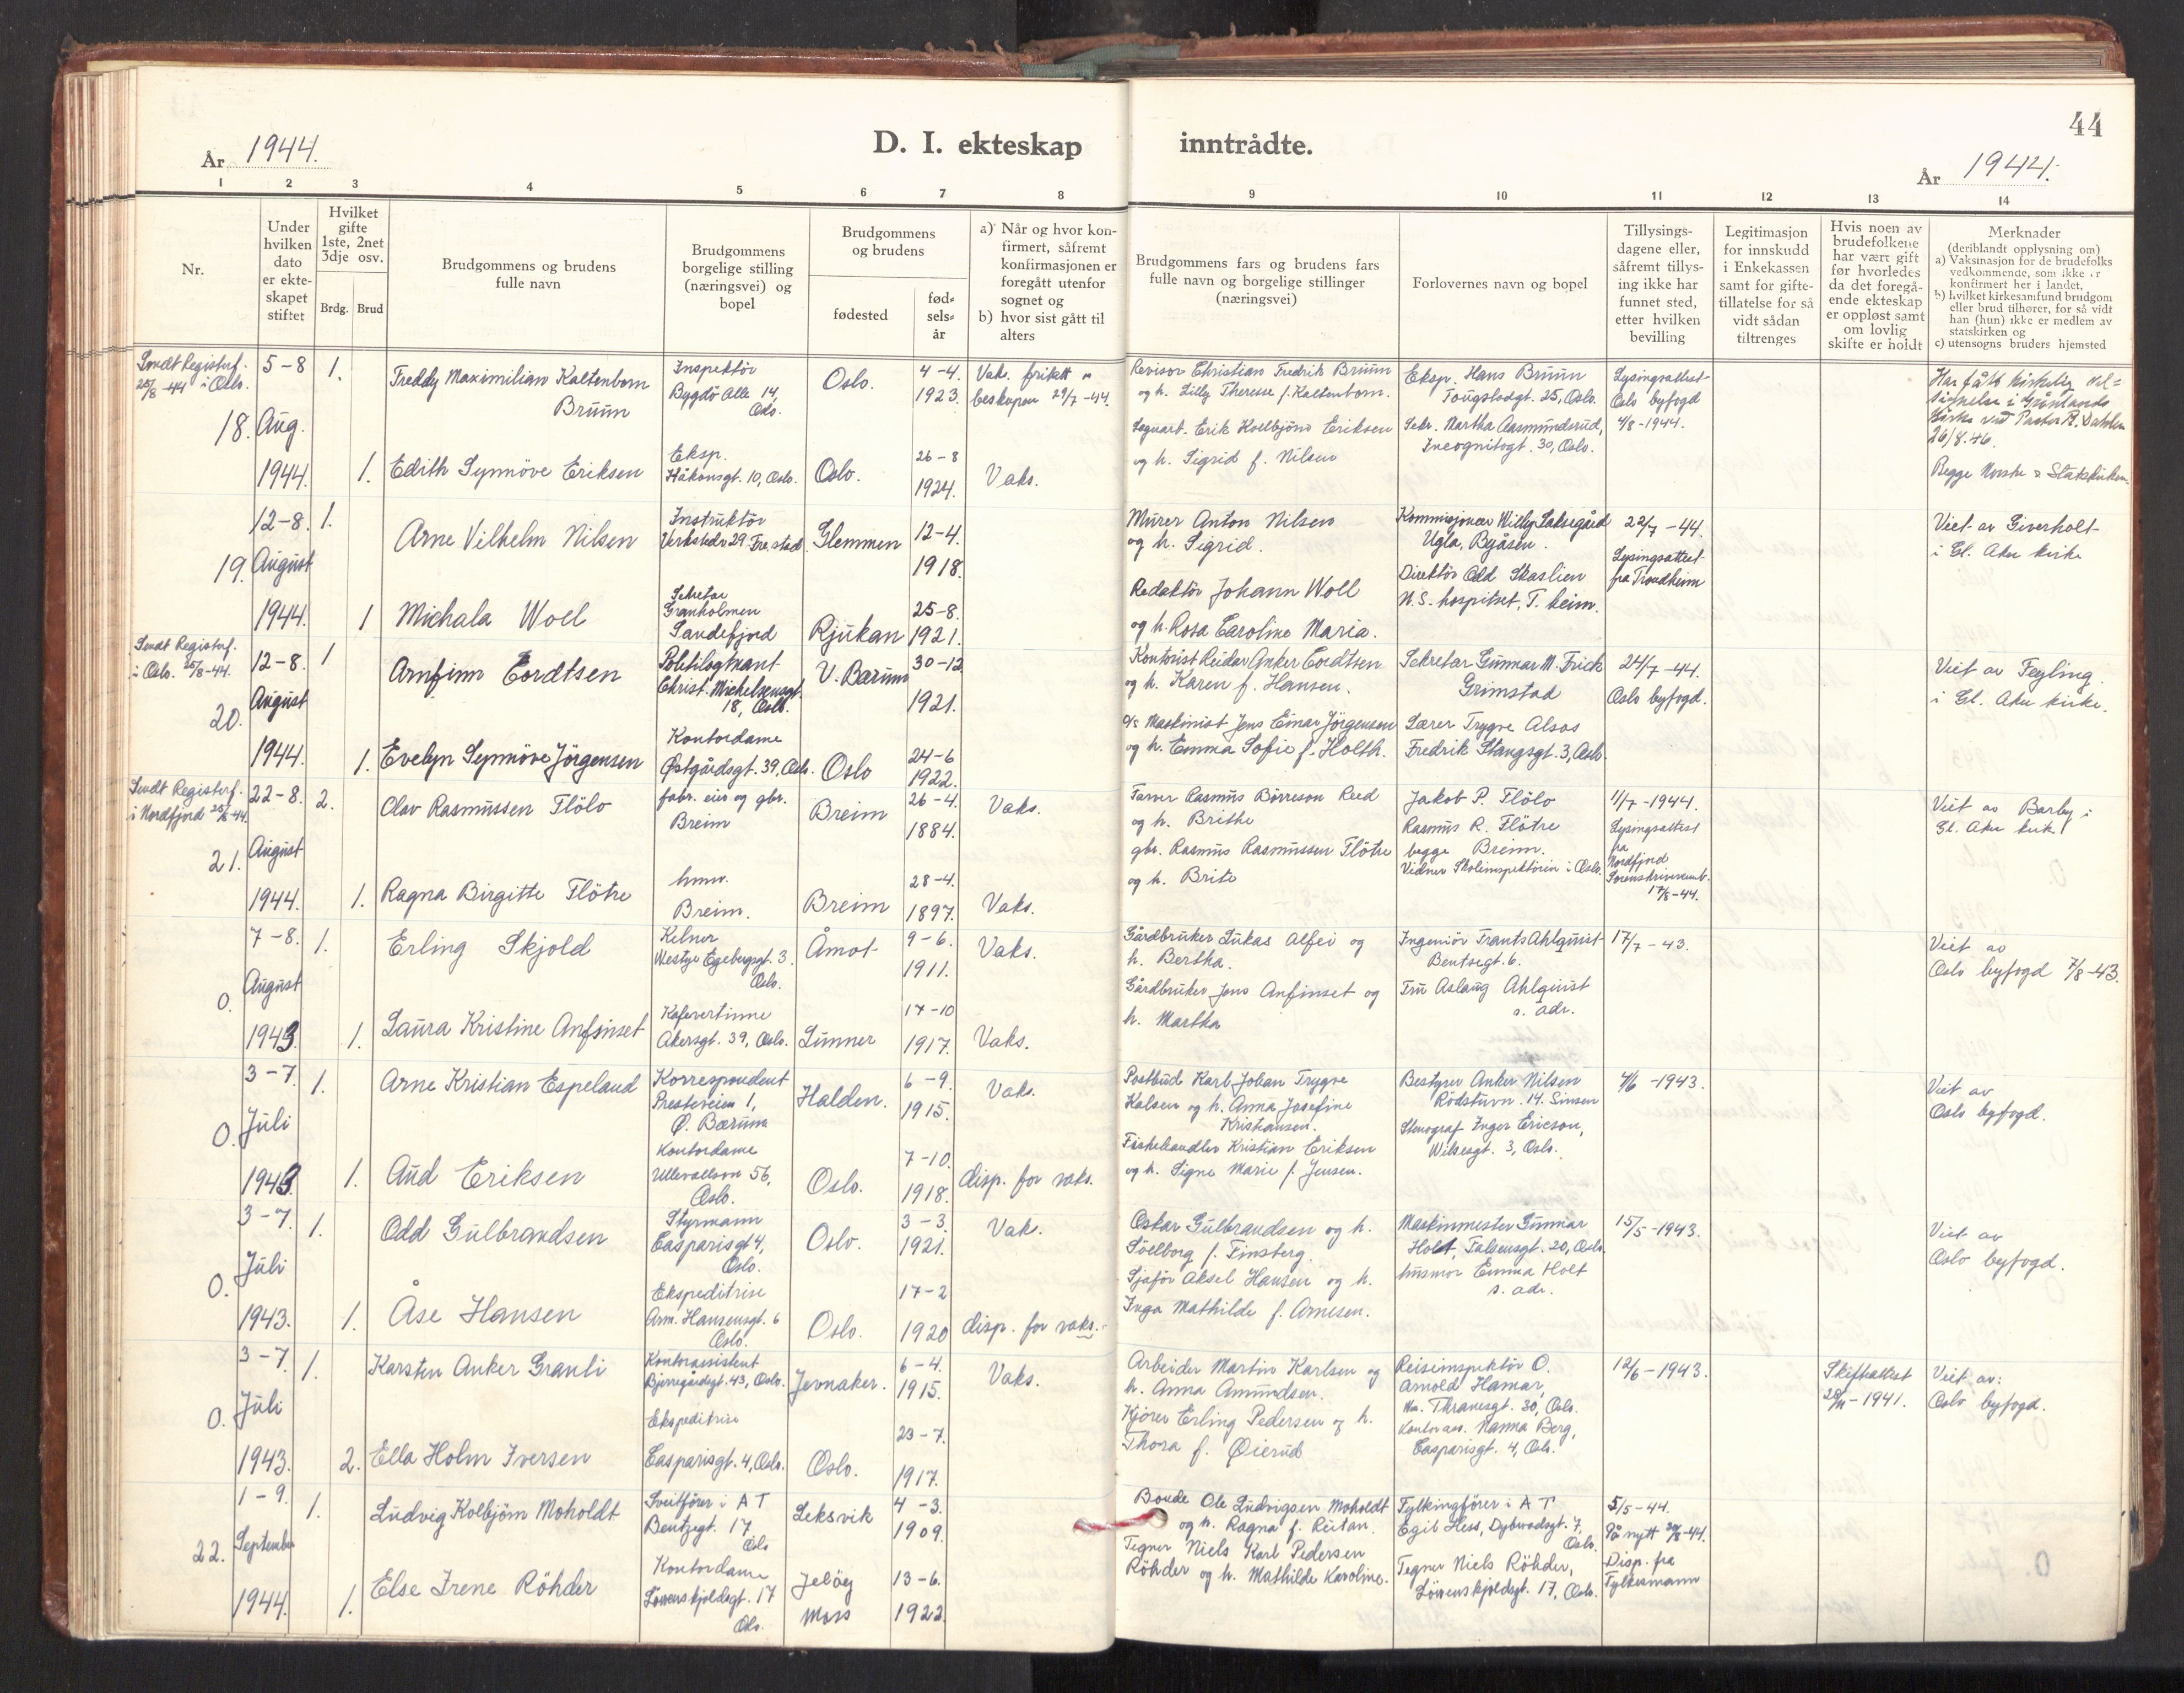 44
År 1944.
D. I. ekteskap inntrådte.
År 1944.
1 2 3 4 5 6 7 8 9 10 11 12 13 14
Nr.
Under
hvilken
dato
er ekte-
skapet
stiftet
Hvilket
gifte
1ste, 2net
3dje osv.
Brdg. Brud
Brudgommens og brudens
fulle navn
Brudgommens
borgelige stilling
(næringsvei) og
bopel
Brudgommens
og brudens
fødested
fød-
sels-
år
a) Når og hvor kon-
firmert, såfremt
konfirmasjonen er
foregått utenfor
sognet og
b) hvor sist gått til
alters
Brudgommens fars og brudens fars
fulle navn og borgelige stillinger
(næringsvei)
Forlovernes navn og bopel
Tillysings-
dagene eller,
såfremt tillys-
ing ikke har
funnet sted,
etter hvilken
bevilling
Legitimasjon
for innskudd
i Enkekassen
samt for gifte-
tillatelse for så
vidt sådan
tiltrenges
Hvis noen av
brudefolkene
har vært gift
før hvorledes
da det foregå-
ende ekteskap
er oppløst samt
om lovlig
skifte er holdt
Merknader
(deriblandt opplysning om)
a) Vaksinasjon for de brudefolks
vedkommende, som ikke er
konfirmert her i landet,
b) hvilket kirkesamfund brudgom
eller brud tilhører, for så vidt
han (hun) ikke er medlem av
statskirken og
c) utensogns bruders hjemsted
Sendt Registerf.
25/8-44 i Oslo.
18.
5-8
Aug.
1944.
1.
Freddy Maximilian Kaltenborn
Bruun
Inspektör
Bygdö Alle 14,
Oslo.
Oslo.
4-4.
1923.
Vaks. fritatt
29/7-44.
Revisor Christian Fredrik Bruun
og h. Lilly Therese f. Kaltenborn.
Eksp. Hans Bruun
25, Oslo.
Lysingsattest
Oslo byfogd
4/8-1944.
Har fått kirkelig vel-
signelse i Grönlands
Kirke ved Pastor
26/8.46.
1.
Edith Synnöve Eriksen
Eksp.
Håkonsgt. 10, Oslo.
Oslo.
26-8
1924.
Vaks.
Erik Kolbjörn Eriksen
og h. Sigrid f. Nilsen
Sekr. Martha Aasmundsrud,
Incognitogt. 30, Oslo.
Begge Norske & Statskirken.
19.
12-8.
August
1944.
1.
Arne Vilhelm Nilsen
Instruktör
Verkstedv 29. Fre.stad.
Glemmen
12-4.
1918.
Murer Anton Nilsen
og h. Sigrid.
Kommisjonær Willy Saksegård
Ugla, Byåsen.
22/7-44.
Lysingsattest
fra Trondheim
Viet av Giverholt
i Gl. Aker kirke
1
Michala Woll
Sekretær
Granholmen
Sandefjord
Rjukan
25-8.
1921.
Redaktör Johann Woll
og h. Rosa Caroline Maria.
Direktör Odd Skaslien
N.S. hospitset, T. heim.
Sendt Registerf.
i Oslo. 25/8-44.
20.
12-8.
August
1944.
1
Arnfinn Cordtsen
Politilöytnant
Christ. Michelsensgt.
18, Oslo.
V. Bærum
30-12
1921.
Kontorist Reidar Anker Cordtsen
og h. Karen f. Hansen.
Sekretær Gunnar M. Frick
Grimstad
24/7-44.
Oslo byfogd.
Viet av Feyling.
i Gl. Aker kirke.
1.
Evelyn Synnöve Jörgensen
Kontordame
Østgårdsgt. 39, Oslo.
Oslo
24-6
1922.
Maskinist Jens Einar Jörgensen
og h. Emma Sofie f. Holth.
Lærer Trygve Alsos
Fredrik Stangsgt. 3, Oslo.
Sendt Registerf.
i Nordfjord 25/8-44.
21.
22-8.
August
1944.
2.
Olav Rasmussen Flölo
fabr. eier og gbr.
Breim
Breim
26-4.
1884.
Vaks.
Farver Rasmus Börreson Reed
og h. Brithe
Jakob P. Flölo
Rasmus R. Flötre
begge Breim.
11/7-1944.
Lysingsattest
fra
Nordfjord
Sorenskriveremb.
17/8-44.
Viet av Barby i
Gl. Aker kirke
1.
Ragna Birgitte Flötre
hmv.
Breim.
Breim
28-4.
1897.
Vaks.
gbr. Rasmus Rasmussen Flötre
og h. Brite
Vidner Skoleinspektören i Oslo.
0.
7-8.
August
1943.
1.
Erling Skjold
Kelner
Westye Egebergsgt. 3.
Oslo.
Åmot
9-6.
1911.
Vaks.
Gårdbruker Lukas Alfei og
h. Bertha.
Ingeniör Frants Ahlquist
Bentsegt. 6.
17/7-43.
Viet av
Oslo byfogd 7/8-43.
1.
Laura Kristine Anfinset
Kafevertinne
Akersgt. 39, Oslo.
Lunner
17-10
1917.
Vaks.
Gårdbruker Jens Anfinset og
h. Martha
Fru Aslaug Ahlquist
s. adr.
0.
3-7.
Juli
1943.
1.
Arne Kristian Espeland
Korrespondent
Presteveien 1,
Ø. Bærum
Halden.
6-9.
1915.
Vaks.
Postbud Karl Johan Trygve
Kalsen og h. Anna Josefine
Kristiansen.
Bestyrer Anker Nilsen
Rödstuvn. 14. Sinsen
4/6-1943.
Viet av
Oslo byfogd.
1.
Aud Eriksen
Kontordame
Ullevallsvn 56,
Oslo.
Oslo.
7-10.
1918.
disp. for vaks.
Fiskehandler Kristian Eriksen
og h. Signe Marie f. Jensen.
Stenograf Inger Ericson,
Wilsesgt. 3, Oslo.
0.
3-7.
Juli
1943.
1.
Odd Gulbrandsen
Styrmann
Casparisgt 4,
Oslo.
Oslo.
3-3.
1921.
Vak.
Oskar Gulbrandsen og h.
Solborg f. Finsberg.
Maskinmester Gunnar
Holt, Falsensgt. 20, Oslo.
15/5-1943.
Viet av
Oslo byfogd.
1.
Åse Hansen
Ekspeditrise
Arm. Hansensgt. 6
Oslo.
Oslo.
17-2
1920
disp. for vaks.
Sjåför Aksel Hansen og h.
Inga Mathilde f. Arnesen.
husmor Emma Holt
s. adr.
0.
3-7.
Juli
1943.
1.
Karsten Anker Granli
Kontorassistent
Bjerregårdsgt. 43, Oslo.
Jevnaker.
6-4.
1915.
Vaks.
Arbeider Martin Karlsen og
h. Anna Amundsen.
Reiseinspektör O.
Arnold Hamar,
M. Thranesgt. 30, Oslo.
12/6-1943.
Skifteattest
1941.
Viet av:
Oslo byfogd.
2.
Ella Holm Iversen
Ekspeditrise
Casparisgt. 4, Oslo.
Oslo.
23-7.
1917.
Kjörer Erling Pedersen og h.
Thora f. Øierud
Kontorass. Nanna Berg,
Casparisgt. 4, Oslo.
22.
1-9.
September
1944.
1.
Ludvig Kolbjörn Moholdt
Sveitförer i AT
Bentzegt. 17
Oslo
Leksvik
4-3.
1909.
Bonde Ole Ludvigsen Moholdt
og h. Ragna f. Reitan.
Fylkingförer i AT
Egil Hess, Dybwadsgt. 7,
Oslo.
5/5-44.
På nytt 30/8-44.
Disp. fra
Fylkesmann
1.
Else Irene Röhder
Kontordame
Lövenskjoldsgt. 17
Oslo.
Jelöy
Moss
13-6.
1922.
Tegner Niels Karl Pedersen
Röhder og h. Mathilde Karoline.
Tegner Niels Röhder,
Lövenskjoldsgt. 17, Oslo.